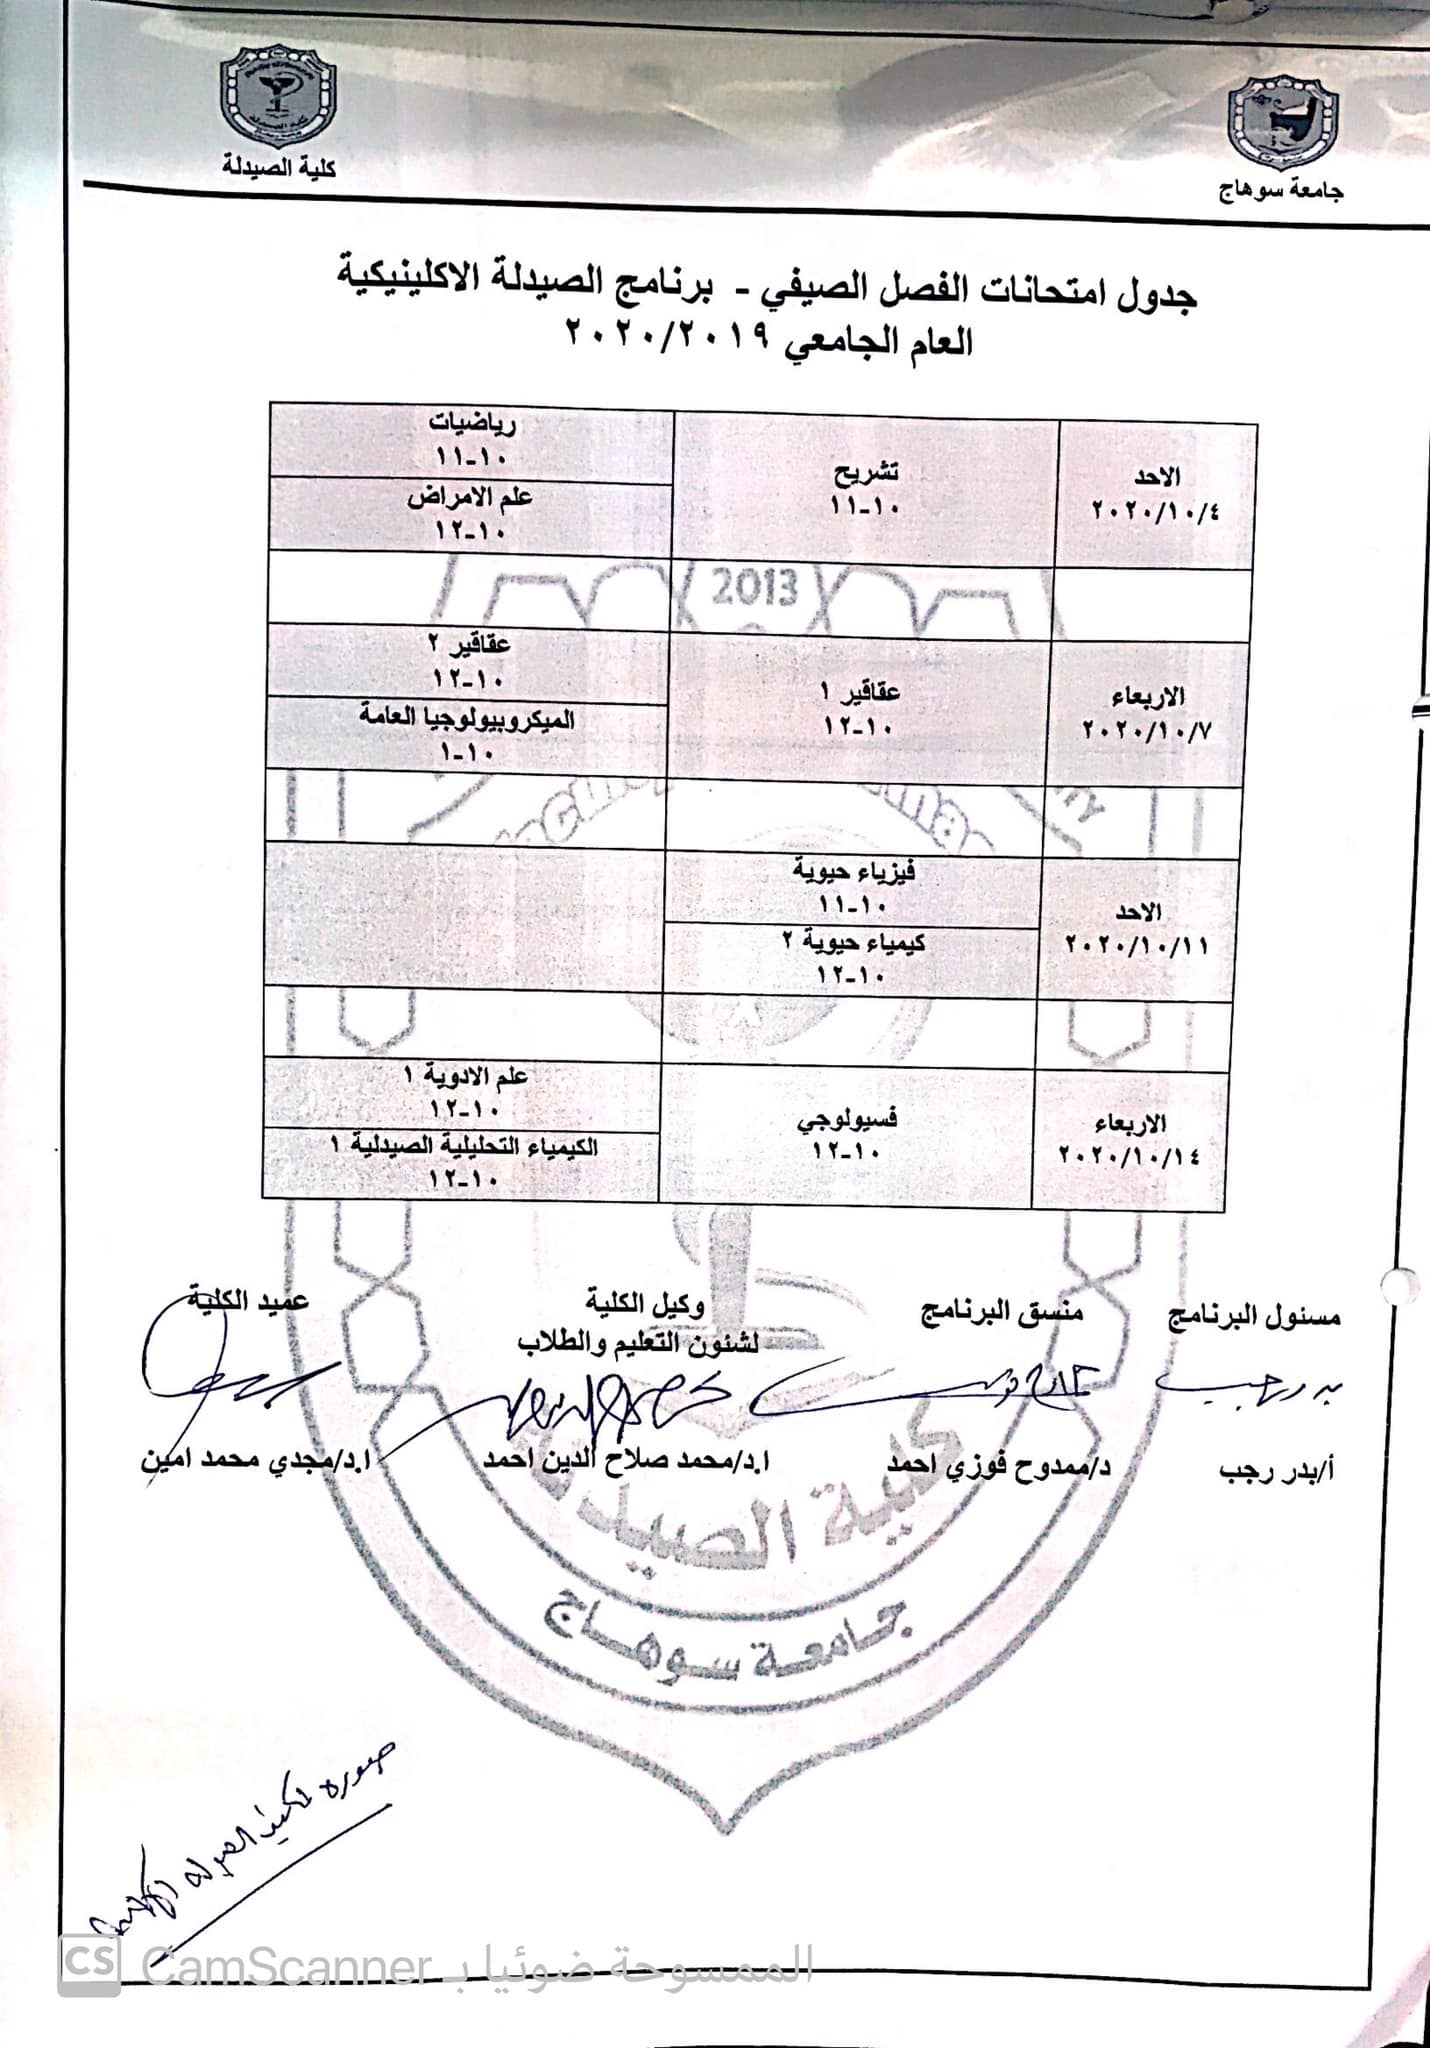 جامعة سوهاج
كلية الصيدلة
جدول امتحانات الفصل الصيفي - برنامج الصيدلة الاكلينيكية
العام الجامعي ٢٠٢٠/٢٠١٩
الاحد
٢٠٢٠/١٠/٤
تشريح
١١-١٠
رياضيات
١١-١٠
علم الامراض
١٢-١٠
2013
الاربعاء
٢٠٢٠/١٠/٧
عقاقير ١
١٢-١٠
عقاقير ٢
١٢-١٠
الميكروبيولوجيا العامة
١-١٠
الاحد
٢٠٢٠/١٠/١١
فيزياء حيوية
١١-١٠
كيمياء حيوية ٢
١٢-١٠
الاربعاء
٢٠٢٠/١٠/١٤
فسيولوجي
١٢-١٠
علم الادوية ١
١٢-١٠
الكيمياء التحليلية الصيدلية ١
١٢-١٠
مسئول البرنامج
منسق البرنامج
وكيل الكلية
لشئون التعليم والطلاب
عميد الكلية
أ/بدر رجب
د/ممدوح فوزي احمد
ا.د/محمد صلاح الدين احمد
ا.د/مجدي محمد امين
كلية الصيدلة
جامعة سوهاج
صورة
الممسوحة ضوئيا بـ CamScanner
CS